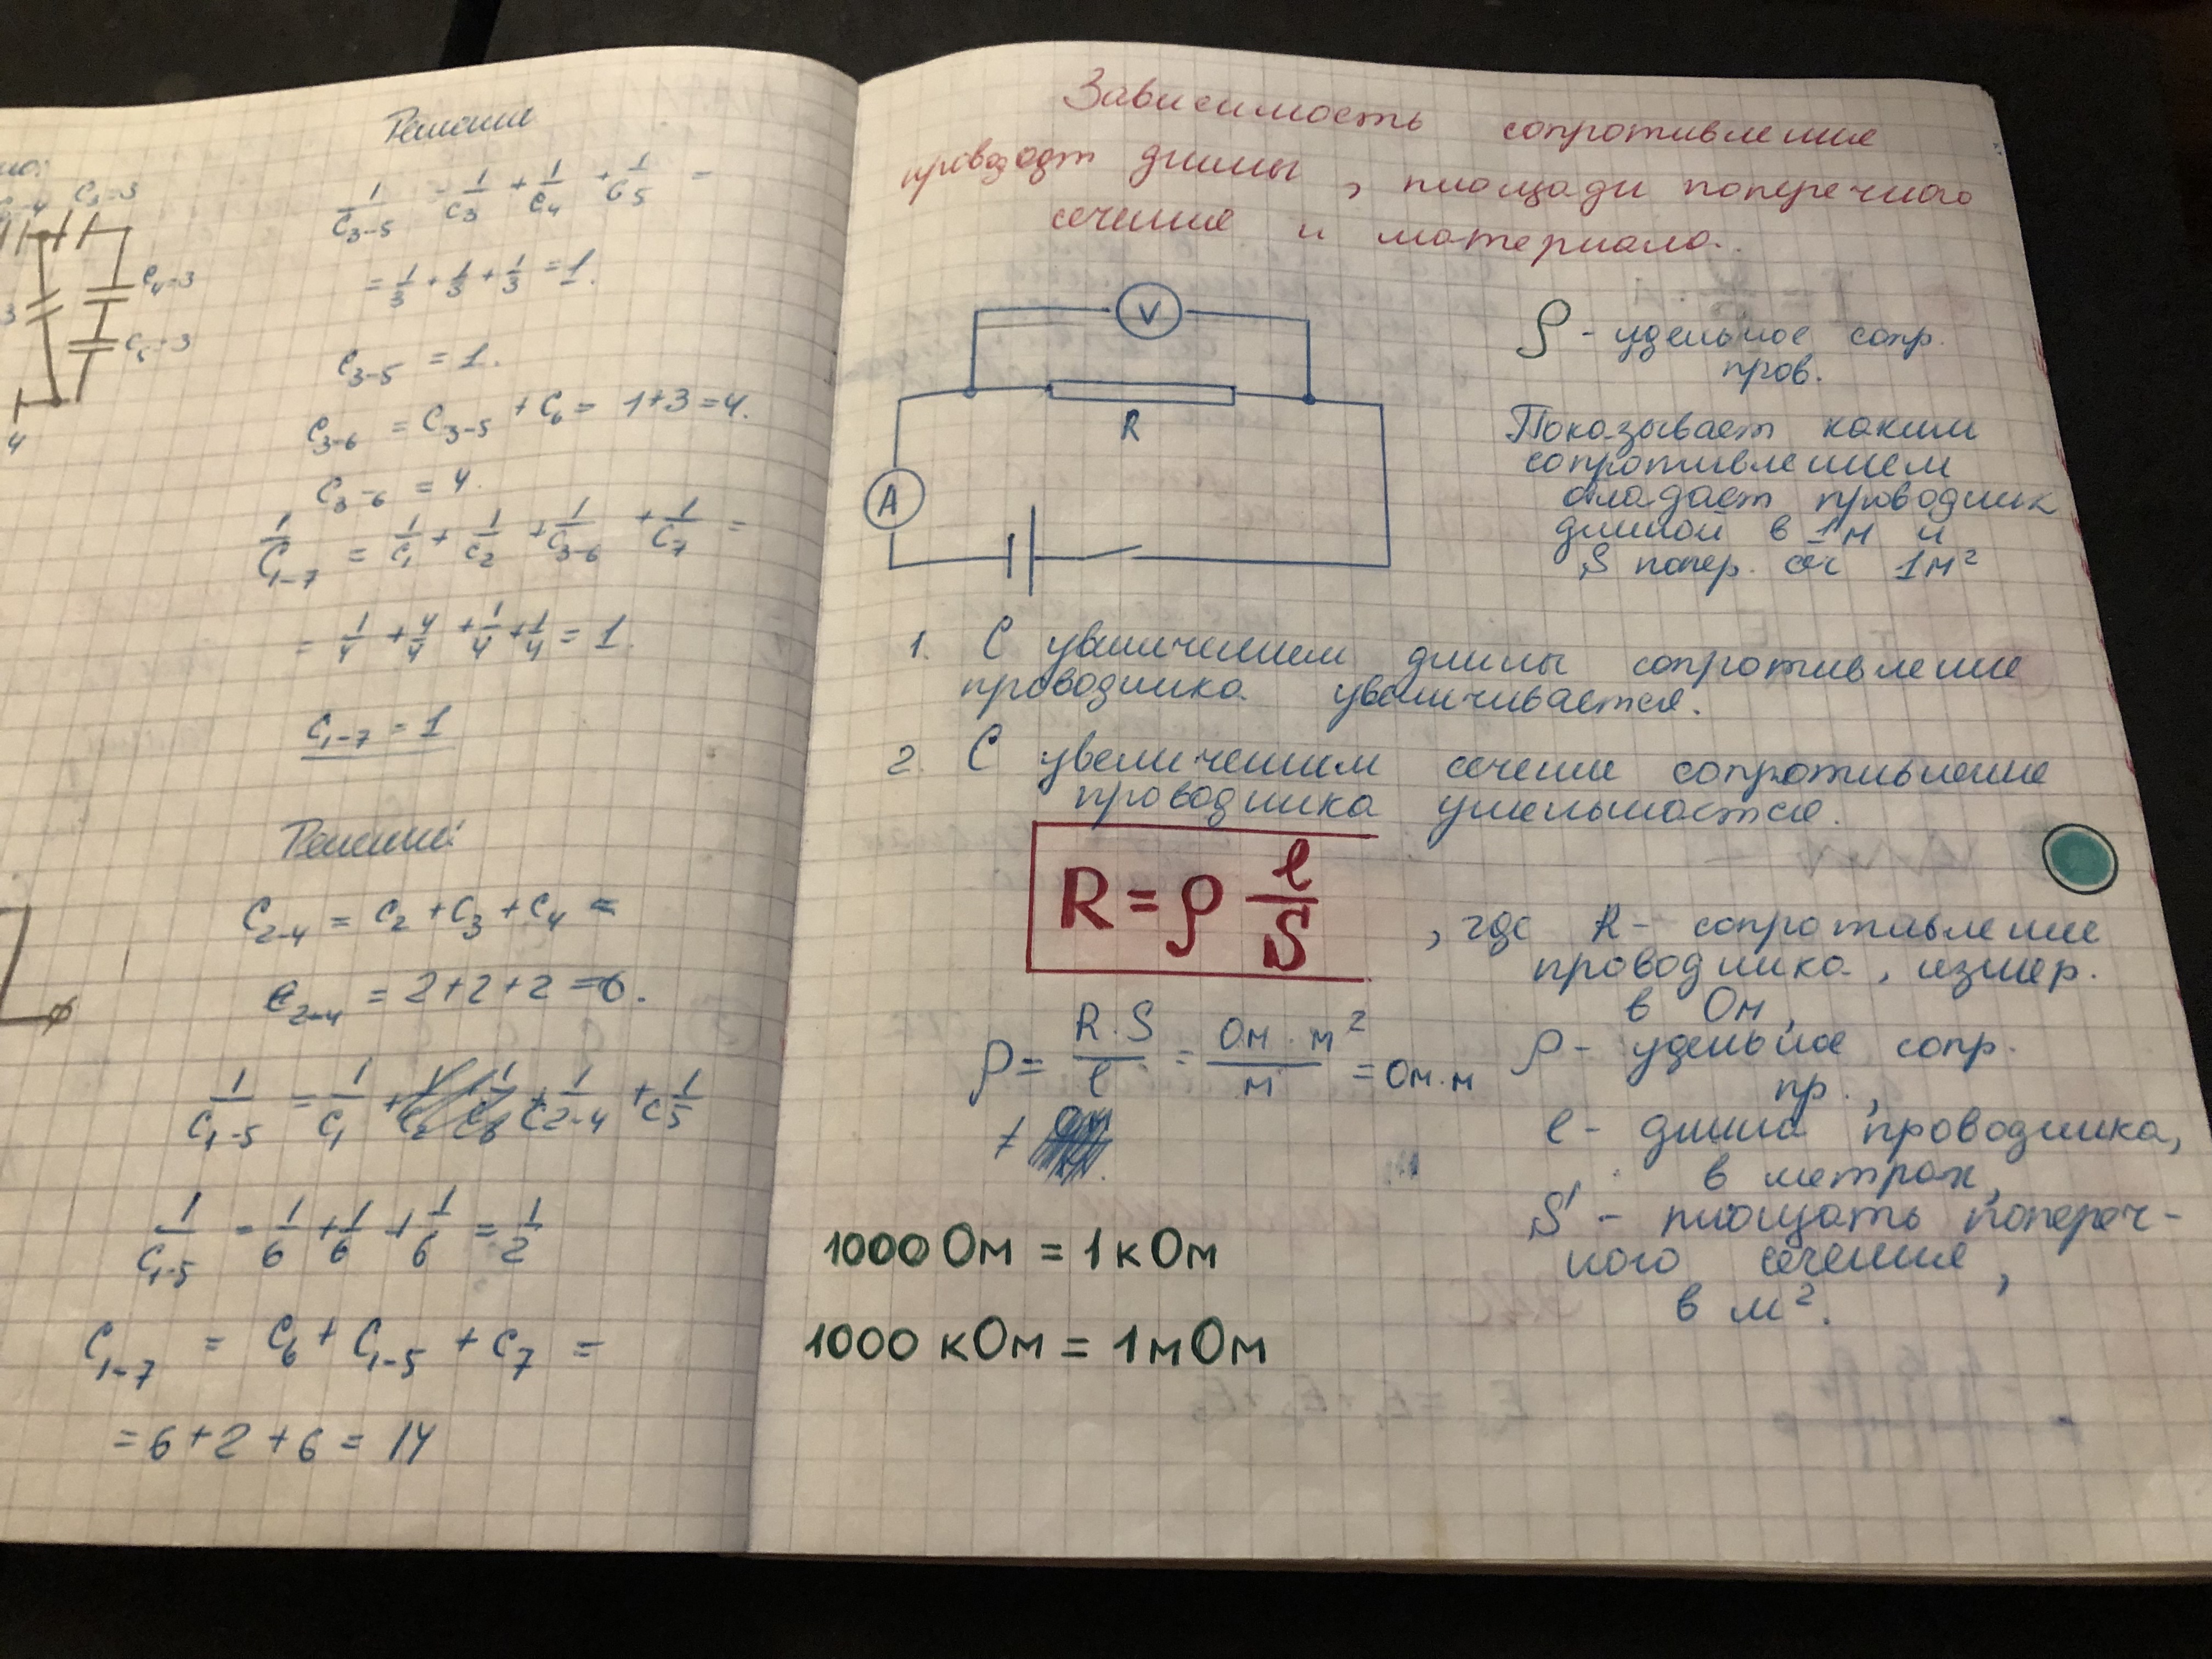 Решение
C₃=3
C₄=3
C₅=3
3
4
1/C₃₋₅ = 1/C₃ + 1/C₄ + 1/C₅ =
= 1/3 + 1/3 + 1/3 = 1.
C₃₋₅ = 1.
C₃₋₆ = C₃₋₅ + C₆ = 1+3=4.
C₃₋₆ = 4.
1/C₁₋₇ = 1/C₁ + 1/C₂ + 1/C₃₋₆ + 1/C₇ =
= 1/4 + 4/4 + 1/4 + 1/4 = 1.
C₁₋₇ = 1
Решение:
C₂₋₄ = C₂ + C₃ + C₄ =
C₂₋₄ = 2+2+2=6.
1/C₁₋₅ = 1/C₁ + 1/C₂₋₄ + C 1/5
1/C₁₋₅ = 1/6 + 1/6 + 1/6 = 1/2
C₁₋₇ = C₆ + C₁₋₅ + C₇ =
= 6+2+6 = 14
Зависимость сопротивления
провод от длины, площади поперечного
сечения и материала.
V
R
A
ρ - удельное сопр.
пров.
Показывает каким
сопротивлением
обладает проводник
длиной в 1м и
S попер. сеч 1м²
1. С увеличением длины сопротивление
проводника увеличивается.
2. С увеличением сечения сопротивление
проводника уменьшается.
R = ρ l/S
, где R - сопротивление
проводника, измер.
в Ом,
ρ = R·S/l = Ом·м²/м = Ом·м
ρ - удельное сопр.
пр.,
l - длина проводника,
в метрах,
S - площать попереч-
ного сечения,
в м².
1000 Ом = 1 кОм
1000 кОм = 1 мОм